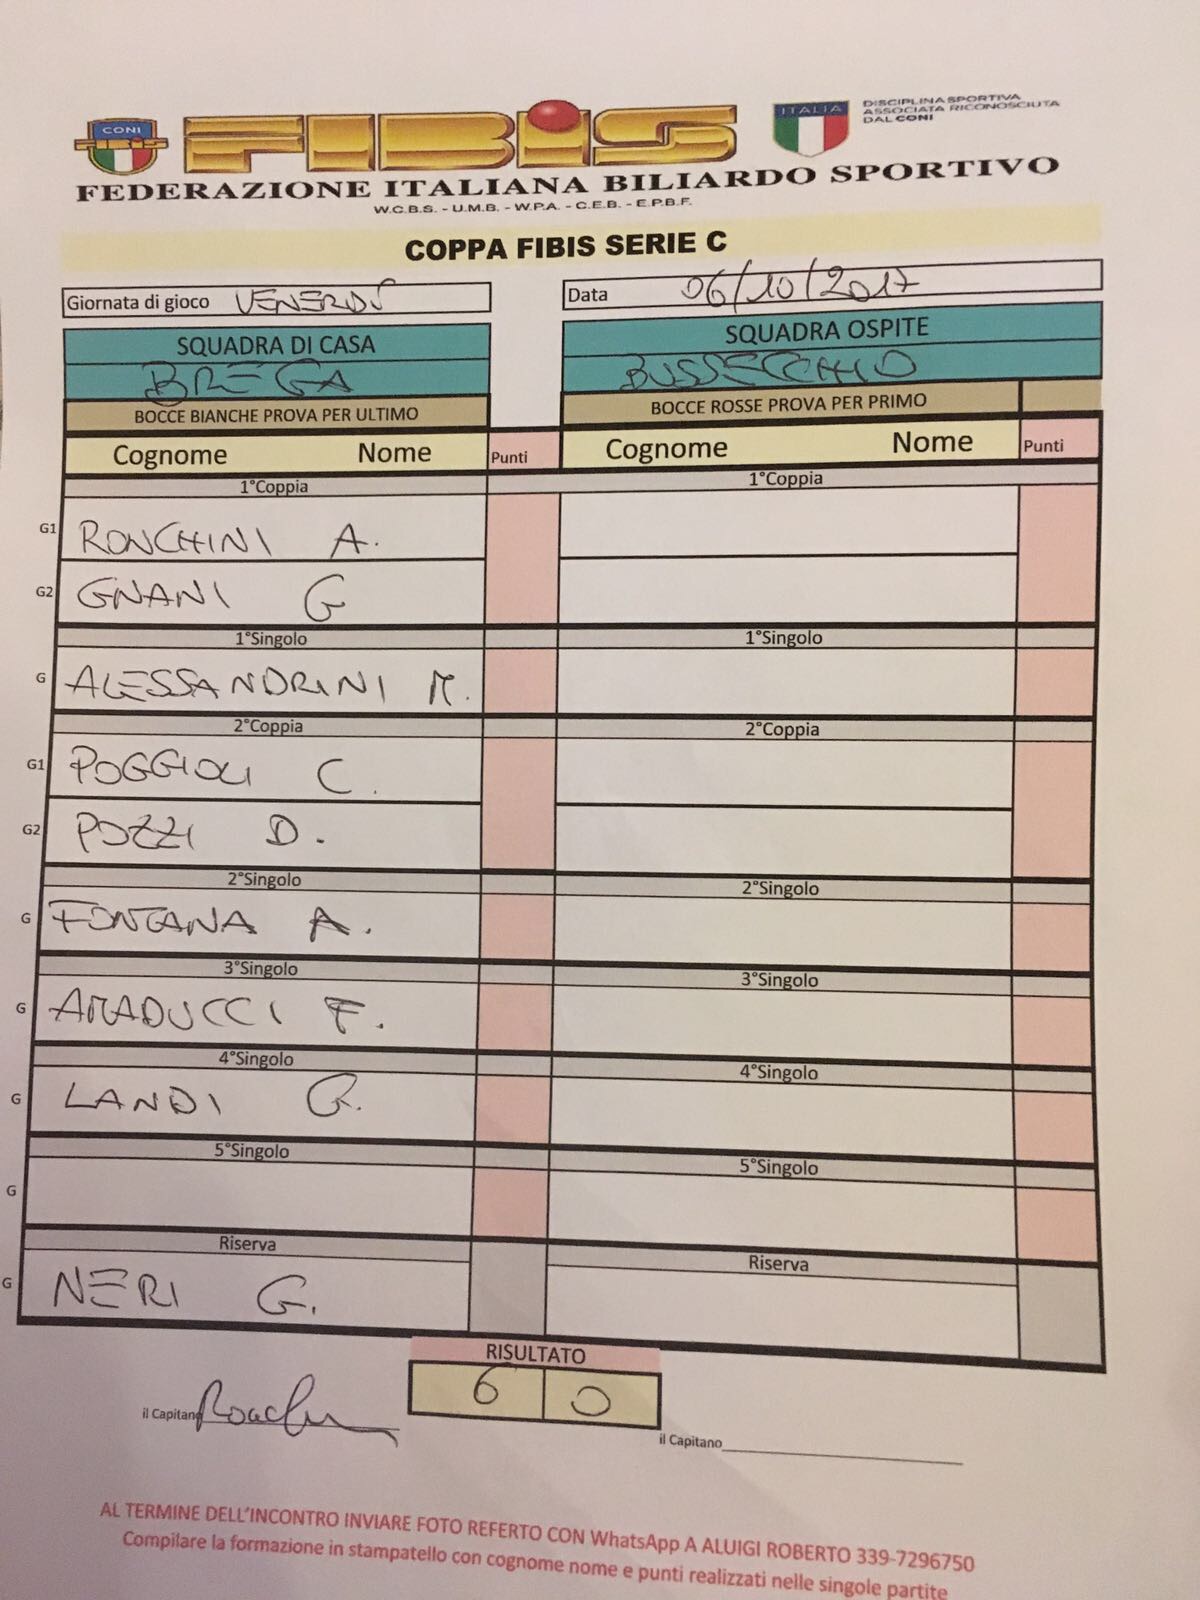 CONI
FIBIS
ITALIA
DISCIPLINA SPORTIVA
ASSOCIATA RICONOSCIUTA
DAL CONI
FEDERAZIONE ITALIANA BILIARDO SPORTIVO
W.C.B.S. - U.M.B. - W.P.A. - C.E.B. - E.P.B.F.
COPPA FIBIS SERIE C
Giornata di gioco VENERDÌ Data 06/10/2017
SQUADRA DI CASA SQUADRA OSPITE
BREGA BUSSECCHIO
BOCCE BIANCHE PROVA PER ULTIMO BOCCE ROSSE PROVA PER PRIMO
Cognome Nome Punti Cognome Nome Punti
1°Coppia 1°Coppia
G1 RONCHINI A.
G2 GNANI G
1°Singolo 1°Singolo
G ALESSANDRINI M.
2°Coppia 2°Coppia
G1 POGGIOLI C.
G2 POZZI D.
2°Singolo 2°Singolo
G FONTANA A.
3°Singolo 3°Singolo
G AMADUCCI F.
4°Singolo 4°Singolo
G LANDI G.
5°Singolo 5°Singolo
G
Riserva Riserva
G NERI G.
RISULTATO
6 0
il Capitano
il Capitano
AL TERMINE DELL'INCONTRO INVIARE FOTO REFERTO CON WhatsApp A ALUIGI ROBERTO 339-7296750
Compilare la formazione in stampatello con cognome nome e punti realizzati nelle singole partite